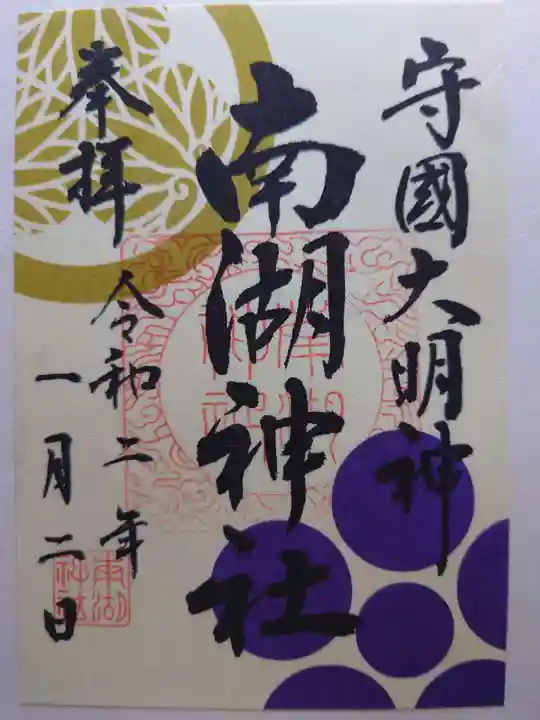 守國大明神
南湖神社
奉拝
令和二年
一月二日
南湖
神社